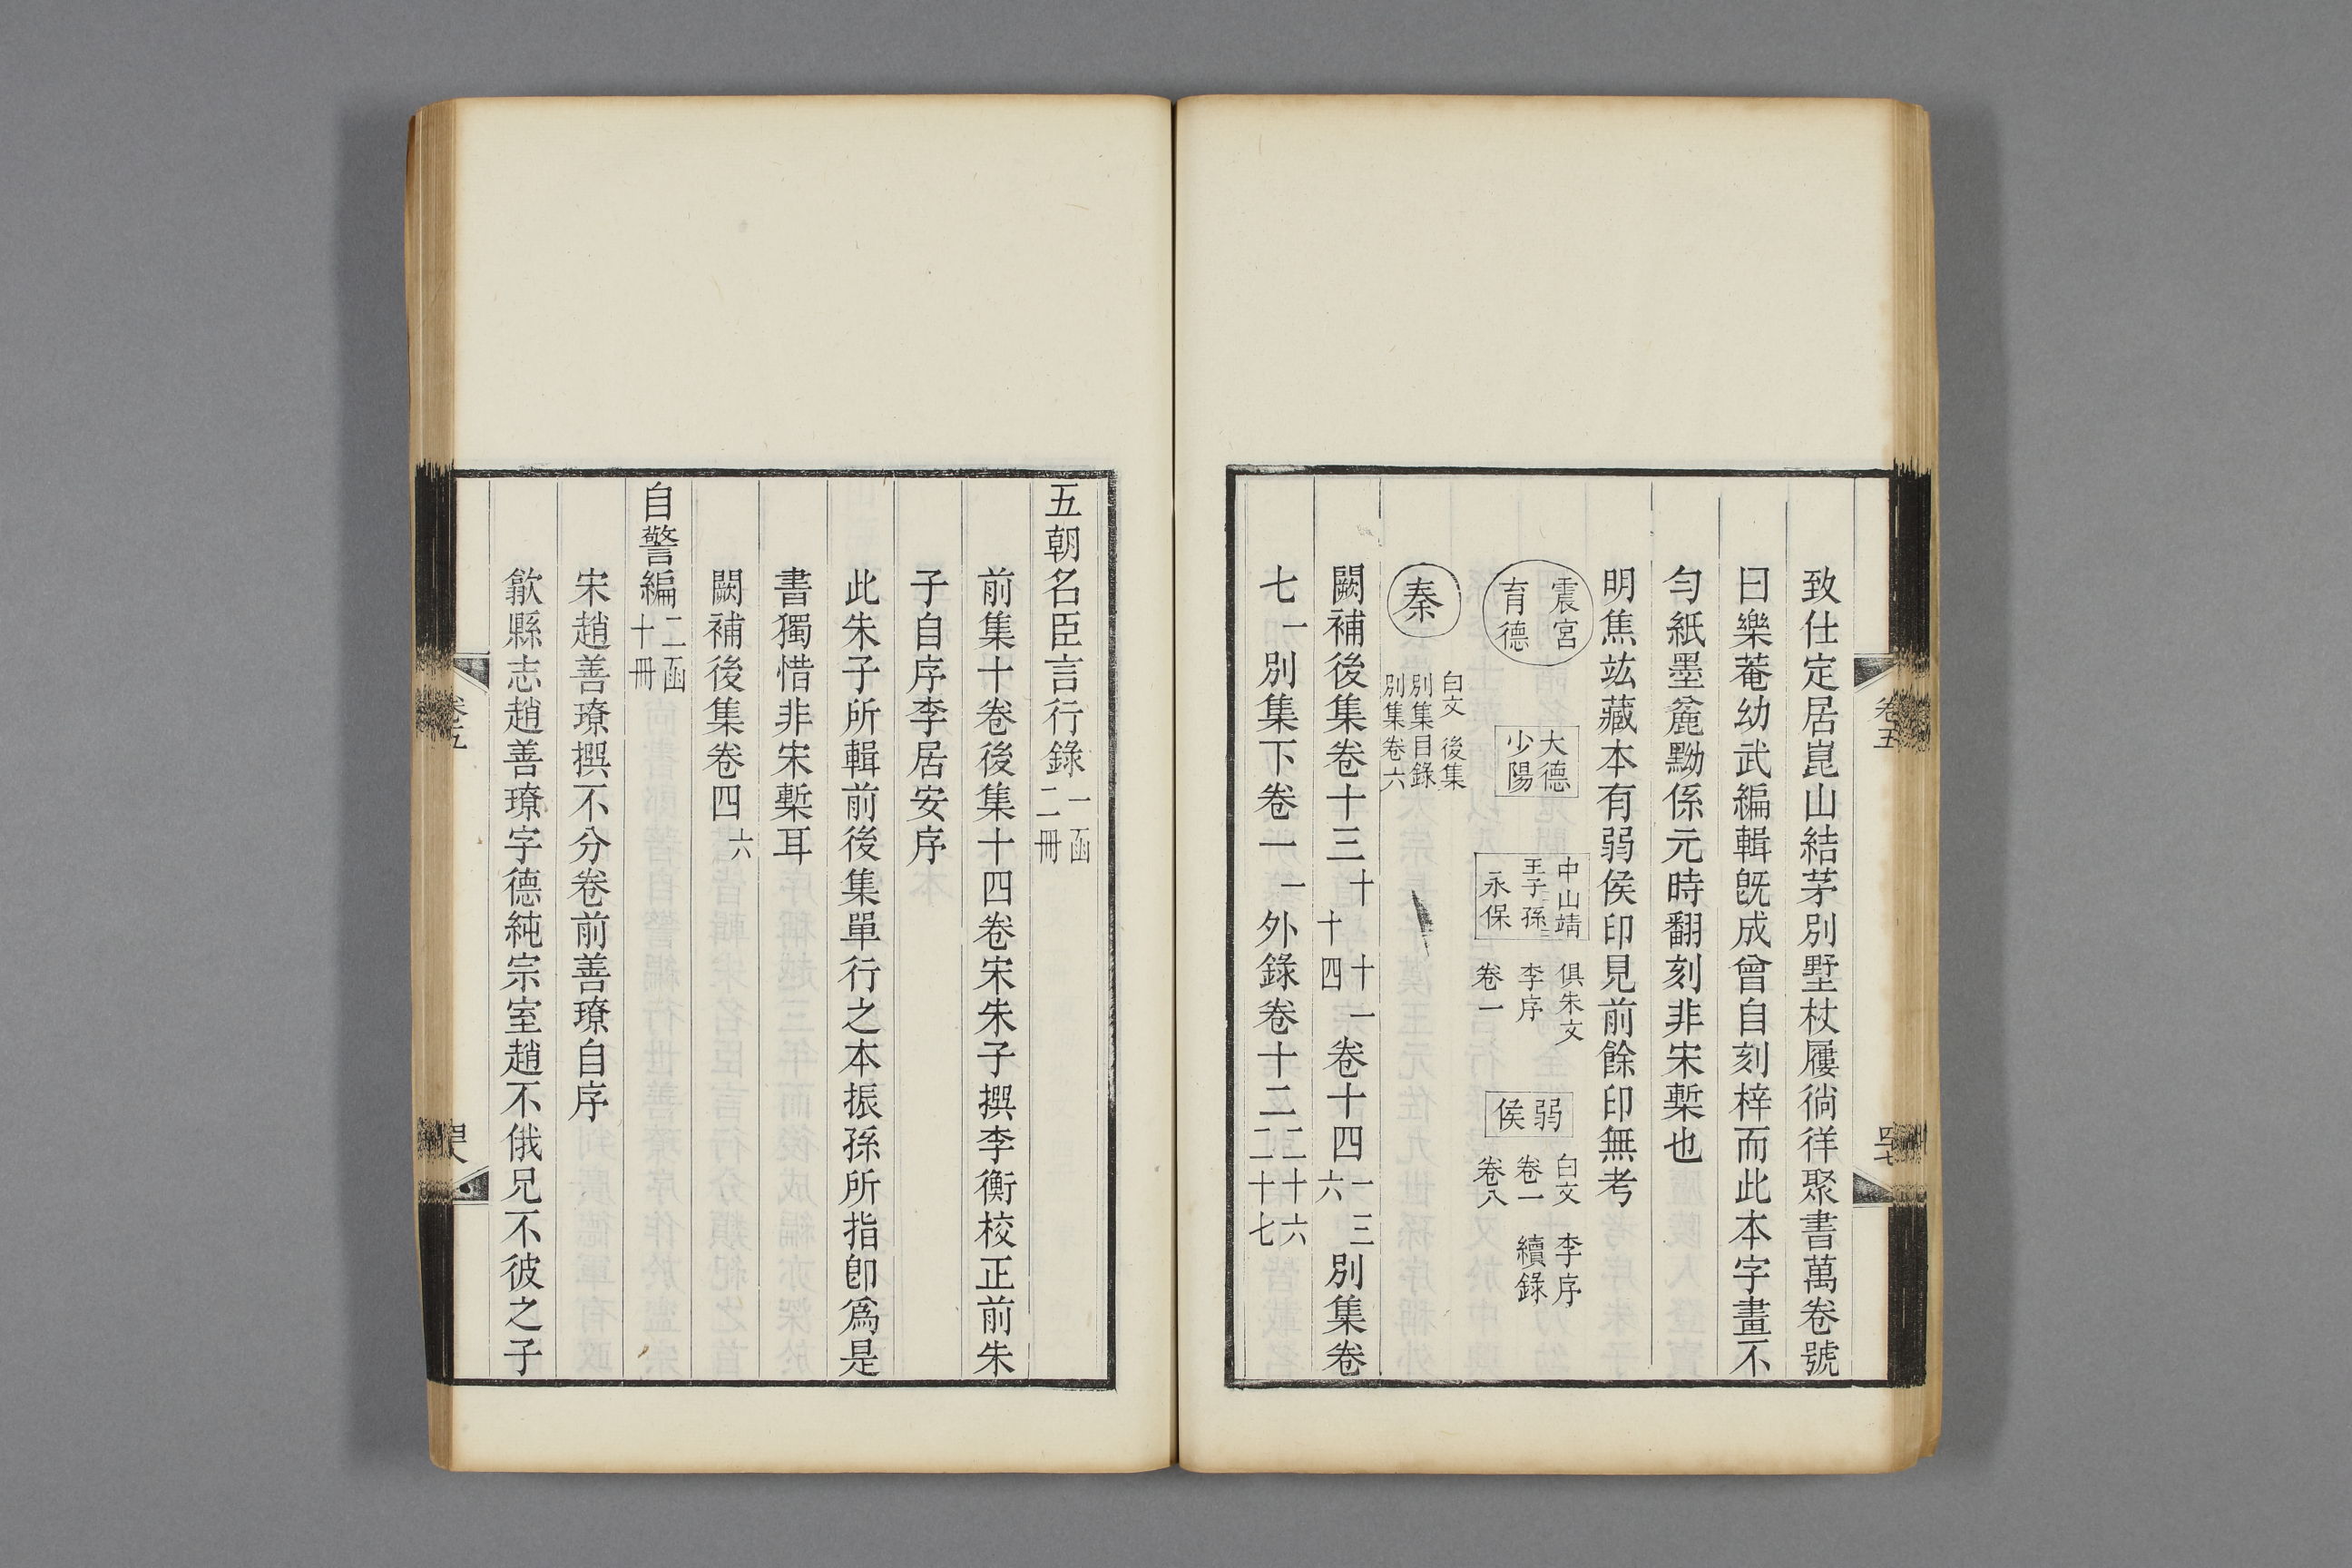 致仕定居崑山結茅別墅杖屨徜徉聚書萬卷號
曰樂菴幼武編輯旣成曾自刻梓而此本字畫不
勻紙墨麄黝係元時翻刻非宋槧也
明焦竑藏本有弱侯印見前餘印無考
震宮
育德
大德
少陽
中山靖
王子孫
永保
俱朱文
李序
卷一
弱
侯
白文 李序
卷一 續錄
卷八
秦
白文 後集
別集目錄
別集卷六
闕補後集卷十三 十 十一
十四
卷十四 一 三
六
別集卷
七 一 別集下卷一 一 外錄卷十二 二十六
二十七
卷五
四十七
五朝名臣言行錄 一函
二冊
前集十卷後集十四卷宋朱子撰李衡校正前朱
子自序李居安序
此朱子所輯前後集單行之本振孫所指卽爲是
書獨惜非宋槧耳
闕補後集卷四 六
自警編 二函
十冊
宋趙善璙撰不分卷前善璙自序
歙縣志趙善璙字德純宗室趙不俄兄不彼之子
卷五